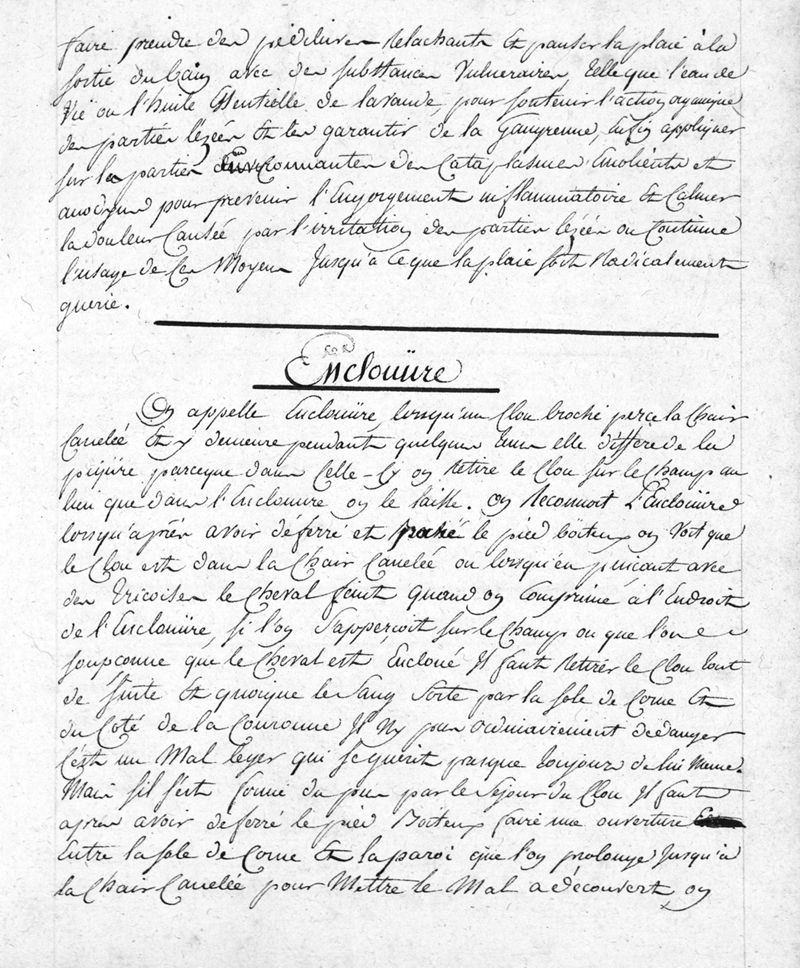 faire prendre des pediluves Relachants Et panser la plaie à la
sortie du bain avec des substances Vulneraires, telle que l'eau de
Vie ou l'huile Essentielle de lavande, pour soutenir l'action organique
des parties lézées Et les garantir de la Gangrenne, Enfin appliquer
sur les parties Environnantes des Cataplasmes Emolients et
anodyns pour prevenir l'Engorgement inflammatoire Et Calmer
la douleur Causée par l'irritation des parties lézées on Continue
l'usage de Ces Moyens Jusqu'a ce que la plaie soit Radicalement
guerie.
Enclouüre
On appelle Enclouüre, lorsqu'un Clou broché perce la Chair
Canelée Et y demeure pendant quelques tems elle differe de la
piqûre parceque dans Celle-Cy on Retire le Clou sur le Champ au
lieu que dans l'Enclouure on le laisse. on Reconnoit L'Enclouüre
lorsqu'après avoir déferré et paré le pied boiteux on Voit que
le Clou est dans la Chair Canelée ou lorsqu'en pinçant avec
des Tricoises le Cheval feint quand on Comprime à l'Endroit
de l'Enclouüre, si l'on s'apperçoit sur le Champ ou que l'on
soupçonne que le Cheval est Encloué Il faut Retirer le Clou tout
de suite Et quoique le Sang sorte par la sole de Corne Et
du Coté de la Couronne Il n'y a pour ordinairement de danger
C'est un Mal leger qui se guerit presque toujours de lui Meme.
Mais s'il s'est formé du pus par le Sejour du Clou Il faut
apres avoir deferré le pied Boiteux faire une ouverture
Entre la sole de Corne Et la paroi que l'on prolonge Jusqu'à
la Chair Canelée pour Mettre le Mal a découvert, on